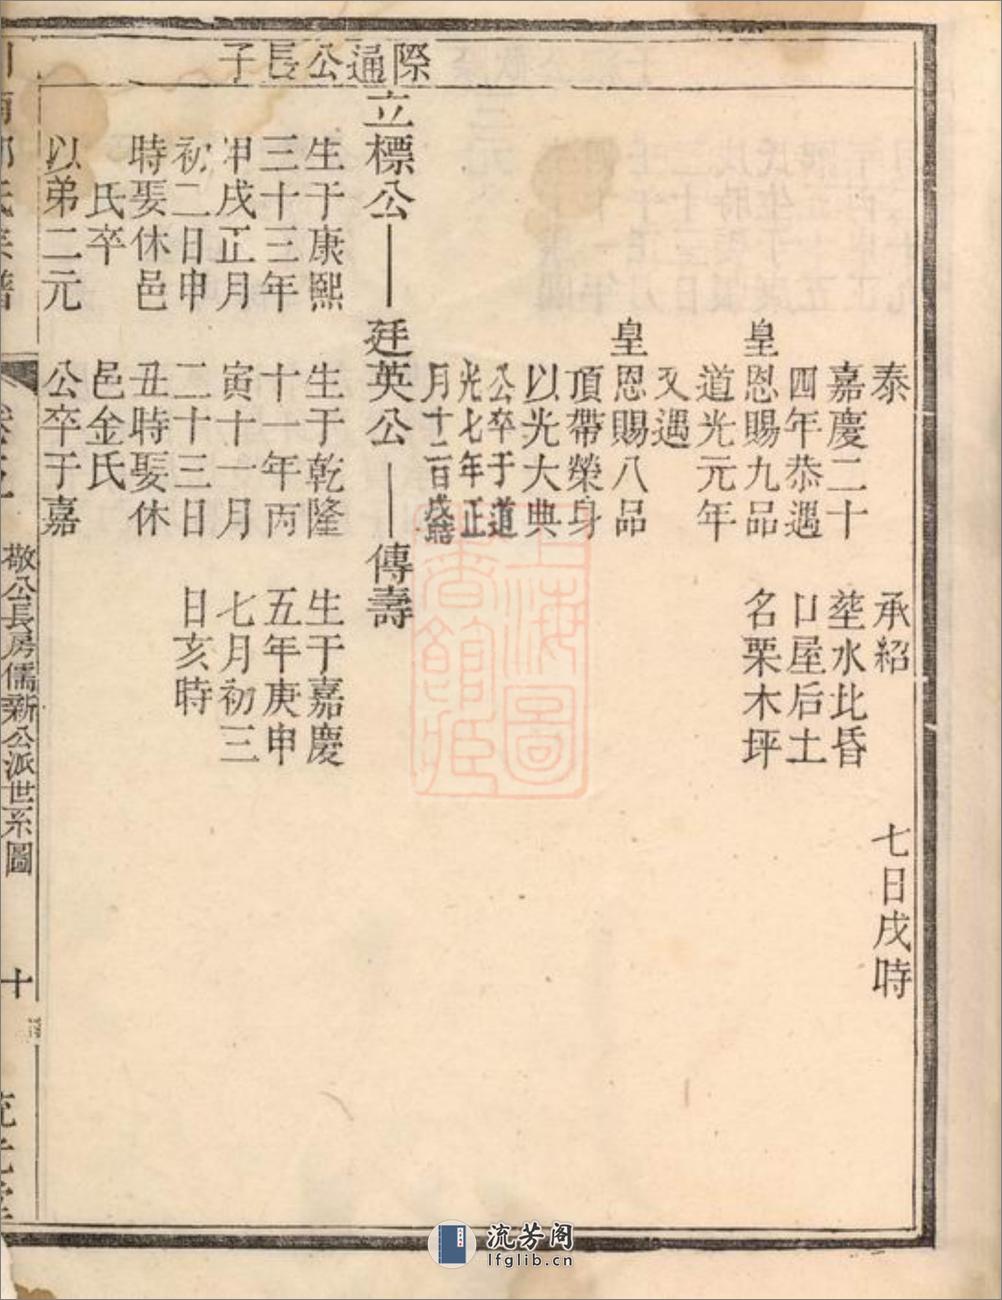 際通公長子
泰
承紹
七日戌時
嘉慶二十
塟水比昏
四年恭遇
口屋后土
皇恩賜九品
名栗木坪
道光元年
又遇
皇恩賜八品
頂帶榮身
以光大典
公卒于道
光七年正
月十二日戌時
立標公
廷英公
傳壽
生于康熙
生于乾隆
生于嘉慶
三十三年
十一年丙
五年庚申
甲戌正月
寅十一月
七月初三
初二日申
二十三日
日亥時
時娶休邑
丑時娶休
氏卒
邑金氏
以弟二元
公卒于嘉
敬公長房儒新公派世系圖
十
上海圖書館藏
流芳阁
lfglib.cn